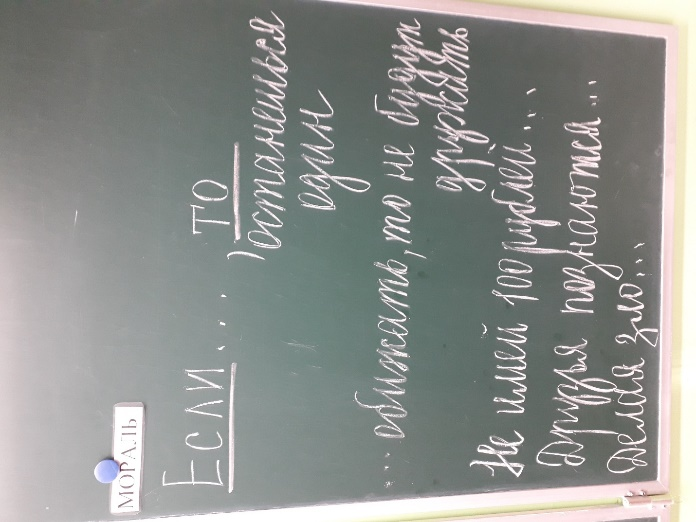 МОРАЛЬ
Если..., то
остаешься
один
... обижать, то не будут
дружить
Не имей 100 рублей...
Друзья познаются...
Делая зло...